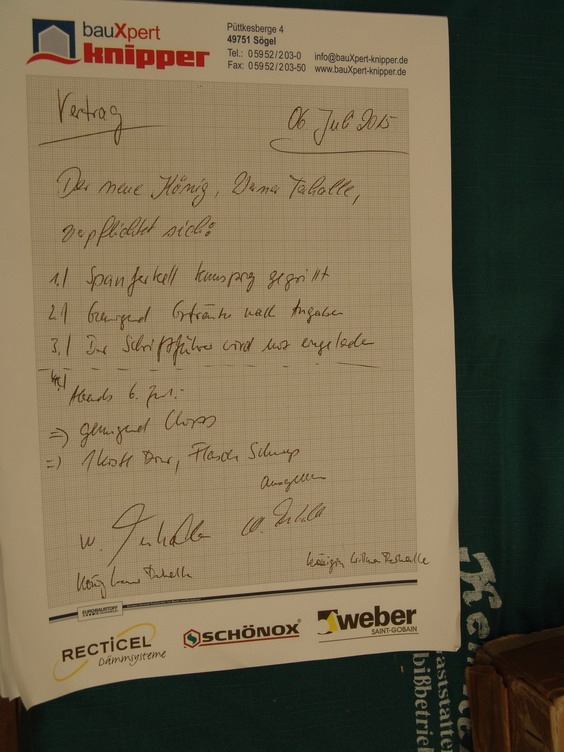 bauXpert
knipper
Püttkesberge 4
49751 Sögel
Tel.: 0 59 52 / 2 03-0
Fax: 0 59 52 / 203-50
info@bauXpert-knipper.de
www.bauXpert-knipper.de
Vertrag
06. Juli 2015
Der neue König,
verpflichtet sich:
1.) Spanferkel knusprig gegrillt
2.) Genügend Getränke nach Angaben
3.) Der Schriftführer wird mit eingeladen
Abends 6. Juli:
=> genügend
=> 1 Kiste Bier, Flasche Schnaps
ausgeben
W.
W.
König
Königin
EUROBAUSTOFF
RECTICEL
Dämmsysteme
SCHÖNOX
weber
SAINT-GOBAIN